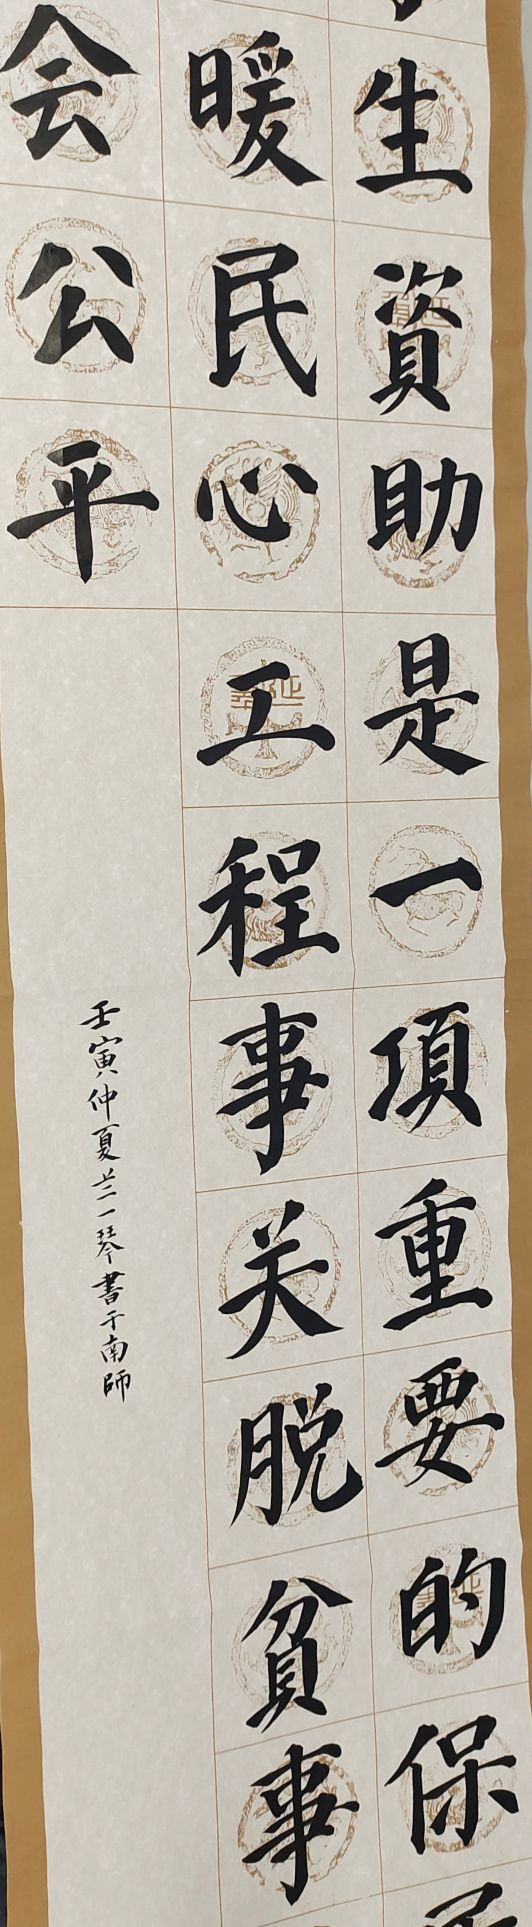 生資助是一項重要的保
暖民心工程事关脱貧事
会公平
壬寅仲夏兰一琴書于南師